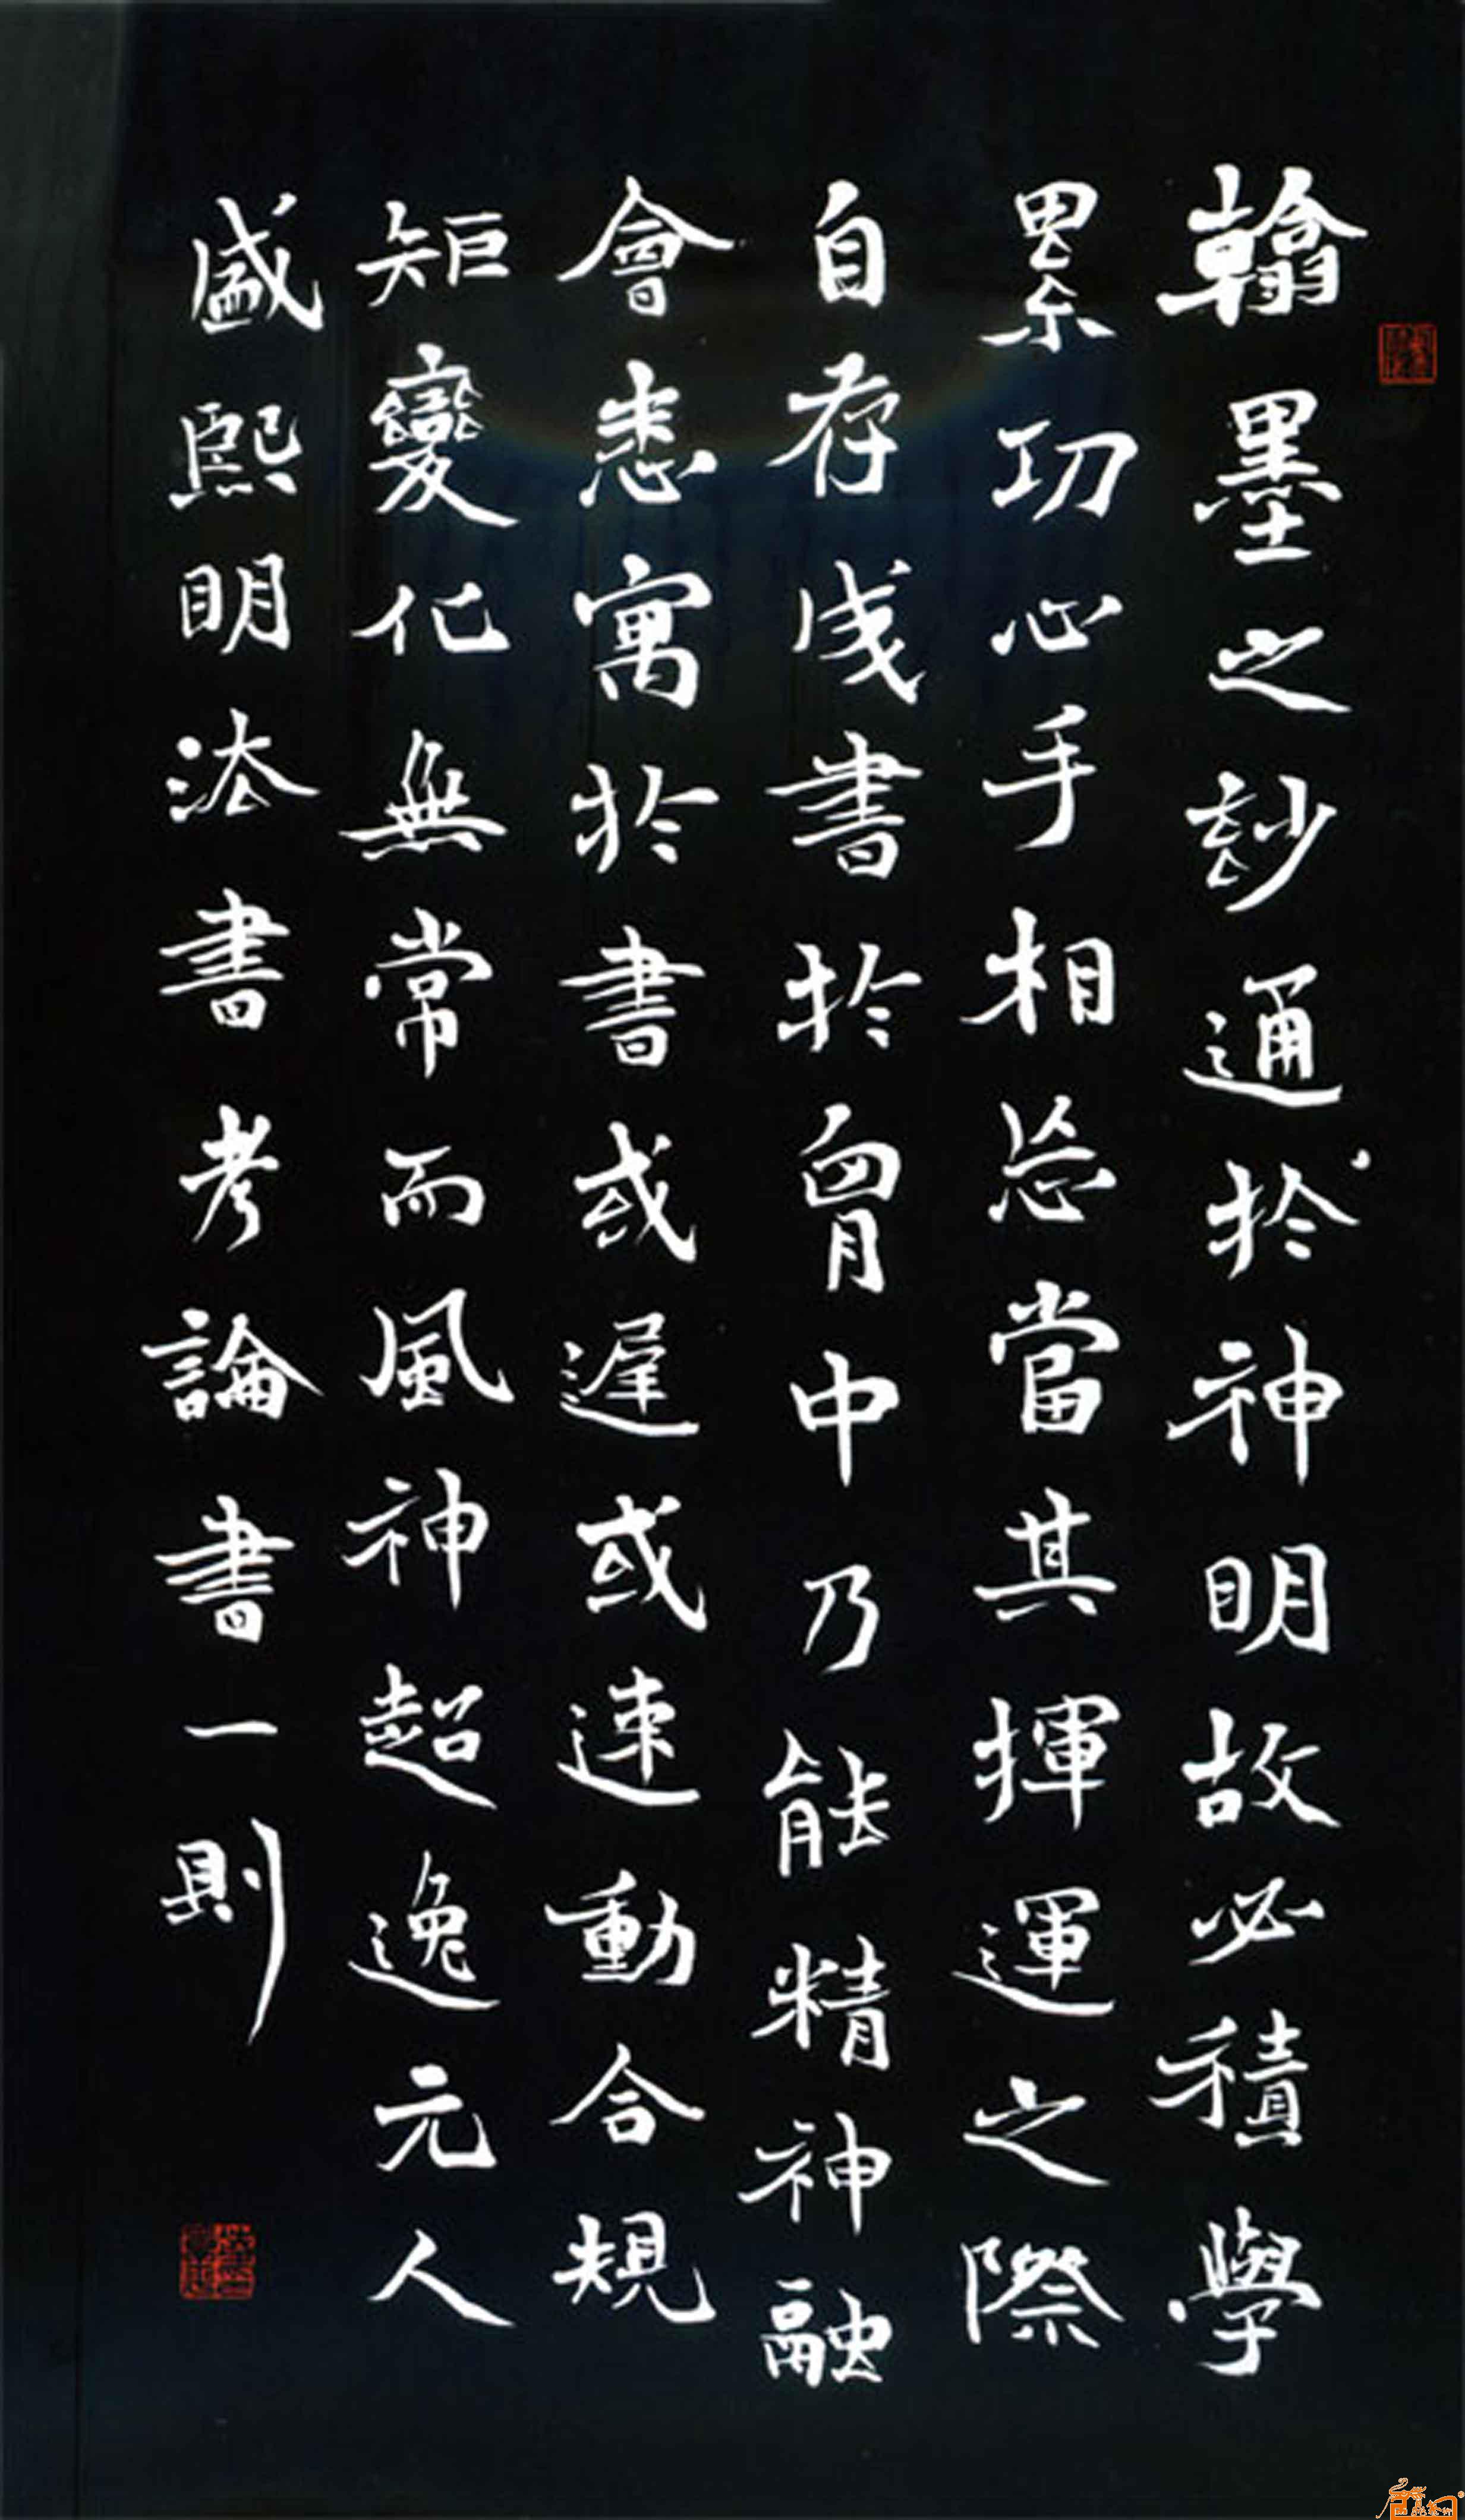 翰墨之妙通於神明故必積學
累功心手相忘當其揮運之際
自存成書於胷中乃能精神融
會悉寓於書或遲或速動合規
矩變化無常而風神超逸元人
盛熙明法書考論書一則